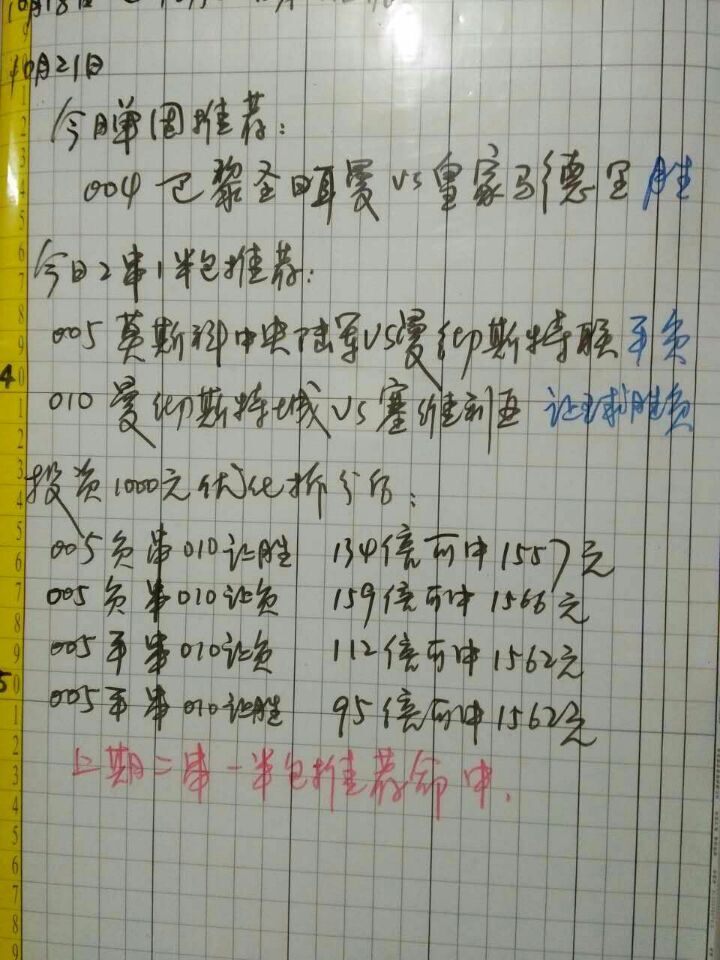 10月18日
10月21日
今日单固推荐：
004 巴黎圣日耳曼 VS 皇家马德里 胜
今日2串1半包推荐：
005 莫斯科中央陆军VS曼彻斯特联 平负
010 曼彻斯特城VS塞维利亚 让球胜负
投资1000元优化拆分后：
005负串010让胜 134倍可中1557元
005负串010让负 159倍可中1566元
005平串010让负 112倍可中1562元
005平串010让胜 95倍可中1562元
上期二串一半包推荐命中.